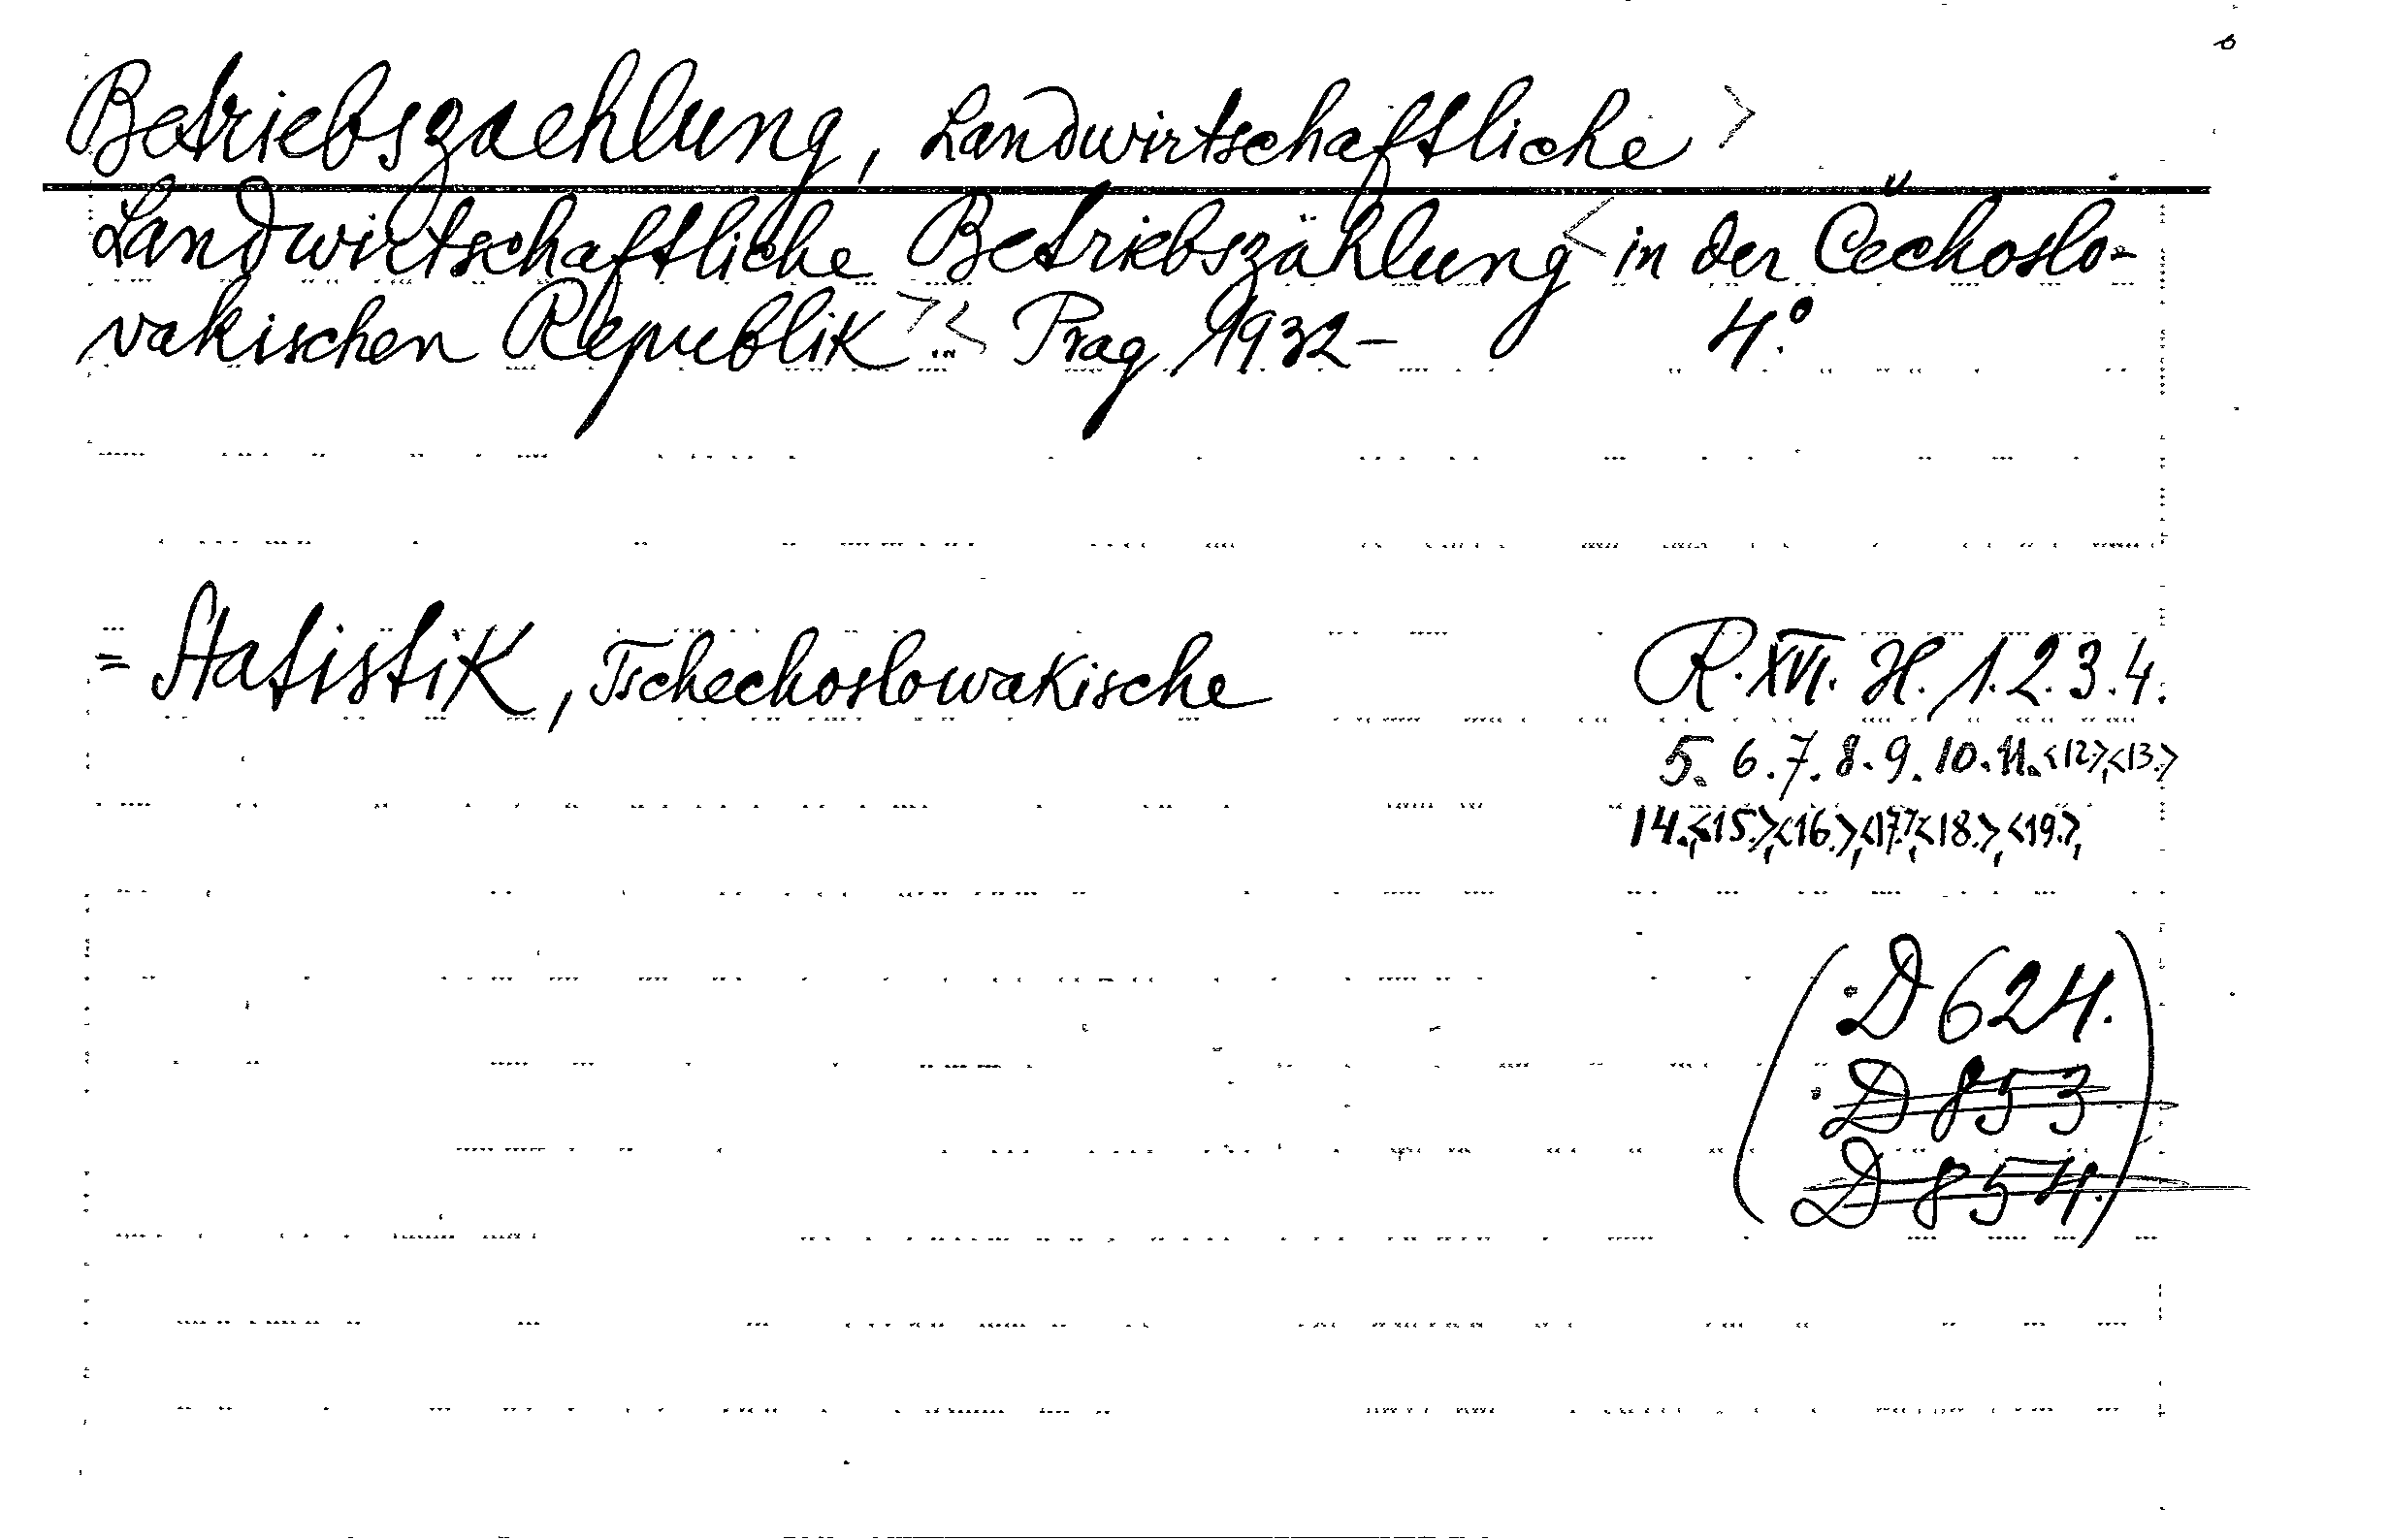 Betriebszaehlung, Landwirtschaftliche >
Landwirtschaftliche Betriebszählung < in der Čechoslo-
vakischen Republik > ... < Prag 1932- 4.°
= Statistik, Tschechoslowakische R. XVI. H. 1. 2. 3. 4.
5. 6. 7. 8. 9. 10. 11. <12.>, <13.>
14. <15.>, <16.>, <17.>, <18.>, <19.>,
(: D 624.
: D 853
D 854.)